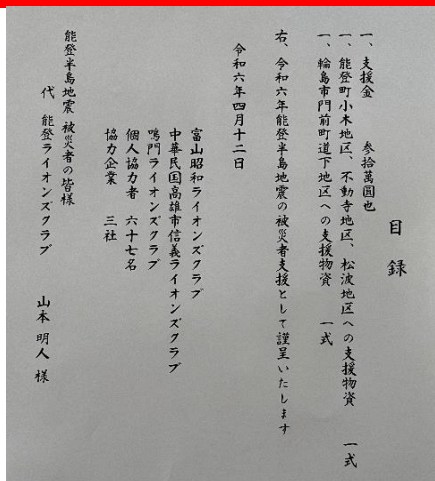 目録
一、支援金 参拾萬圓也
一、能登町小木地区、不動寺地区、松波地区への支援物資 一式
一、輪島市門前町道下地区への支援物資 一式
右、令和六年能登半島地震の被災者支援として謹呈いたします
令和六年四月十二日
富山昭和ライオンズクラブ
中華民国高雄市信義ライオンズクラブ
鳴門ライオンズクラブ
個人協力者 六十七名
協力企業 三社
能登半島地震 被災者の皆様
代 能登ライオンズクラブ 山本明人 様